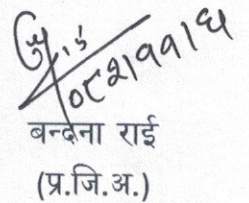 ०८२।११।६
बन्दना राई
(प्र.जि.अ.)